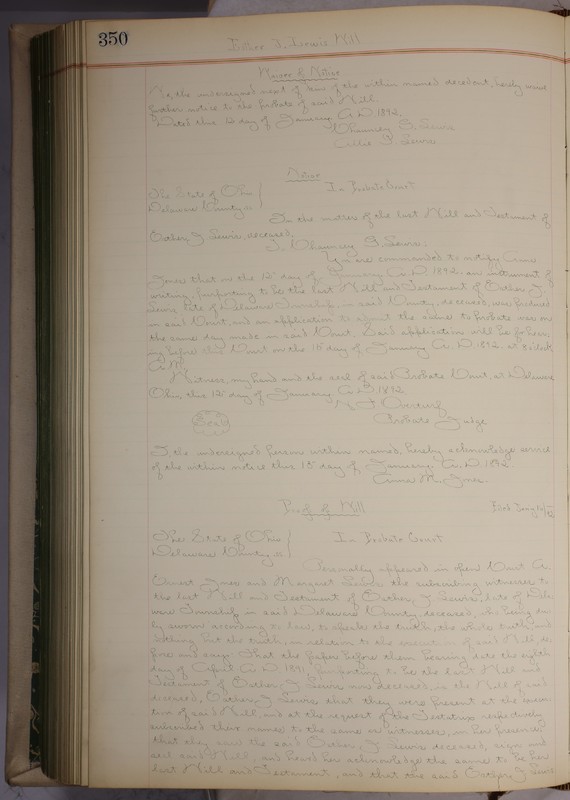 350
J. Lewis Will
Waiver of Notice
We, the undersigned next of kin of the within named decedent, hereby waive
further notice to the probate of said Will.
Dated this 12 day of January A.D. 1892.
Chauncey
Notice
The State of Ohio
Delaware County ss
In Probate Court
In the matter of the last Will and Testament of
J. Lewis, deceased.
To Chauncey
You are commanded to notify Anna
Jones that on the 12" day of January A.D. 1892, an instrument of
writing, purporting to be the last Will and Testament of J.
Lewis, late of Delaware Township, in said County, deceased, was produced
in said Court, and an application to admit the same to probate was on
the same day made in said Court. Said application will be for hear-
ing before this Court on the 15 day of January A.D. 1892, at o'clock
A.M.
Witness, my hand and the seal of said Probate Court, at Delaware
Ohio this 12" day of January, A.D. 1892
Probate Judge
Seal
I, the undersigned person within named, hereby acknowledge service
of the within notice this day of January A.D. 1892.
Anna M. Jones.
Proof of Will
Filed
The State of Ohio
Delaware County ss
In Probate Court
Personally appeared in open Court
Jones and Margaret Lewis the subscribing witnesses to
the last Will and Testament of J. Lewis late of Dela-
ware Township in said Delaware County, deceased, who being du-
ly sworn according to law, to speak the truth, the whole truth, and
nothing but the truth, in relation to the execution of said Will, de-
pose and say: That the paper before them bearing date the eighth
day of April A.D. 1891, purporting to be the last Will and
Testament of J. Lewis now deceased, is the Will of said
deceased, J. Lewis, that they were present at the execu-
tion of said Will, and at the request of the Testatrix, respectively
subscribed their names to the same as witnesses, in her presence;
that they saw the said J. Lewis deceased, sign and
seal said Will, and heard her acknowledge the same to be her
last Will and Testament, and that the said J. Lewis